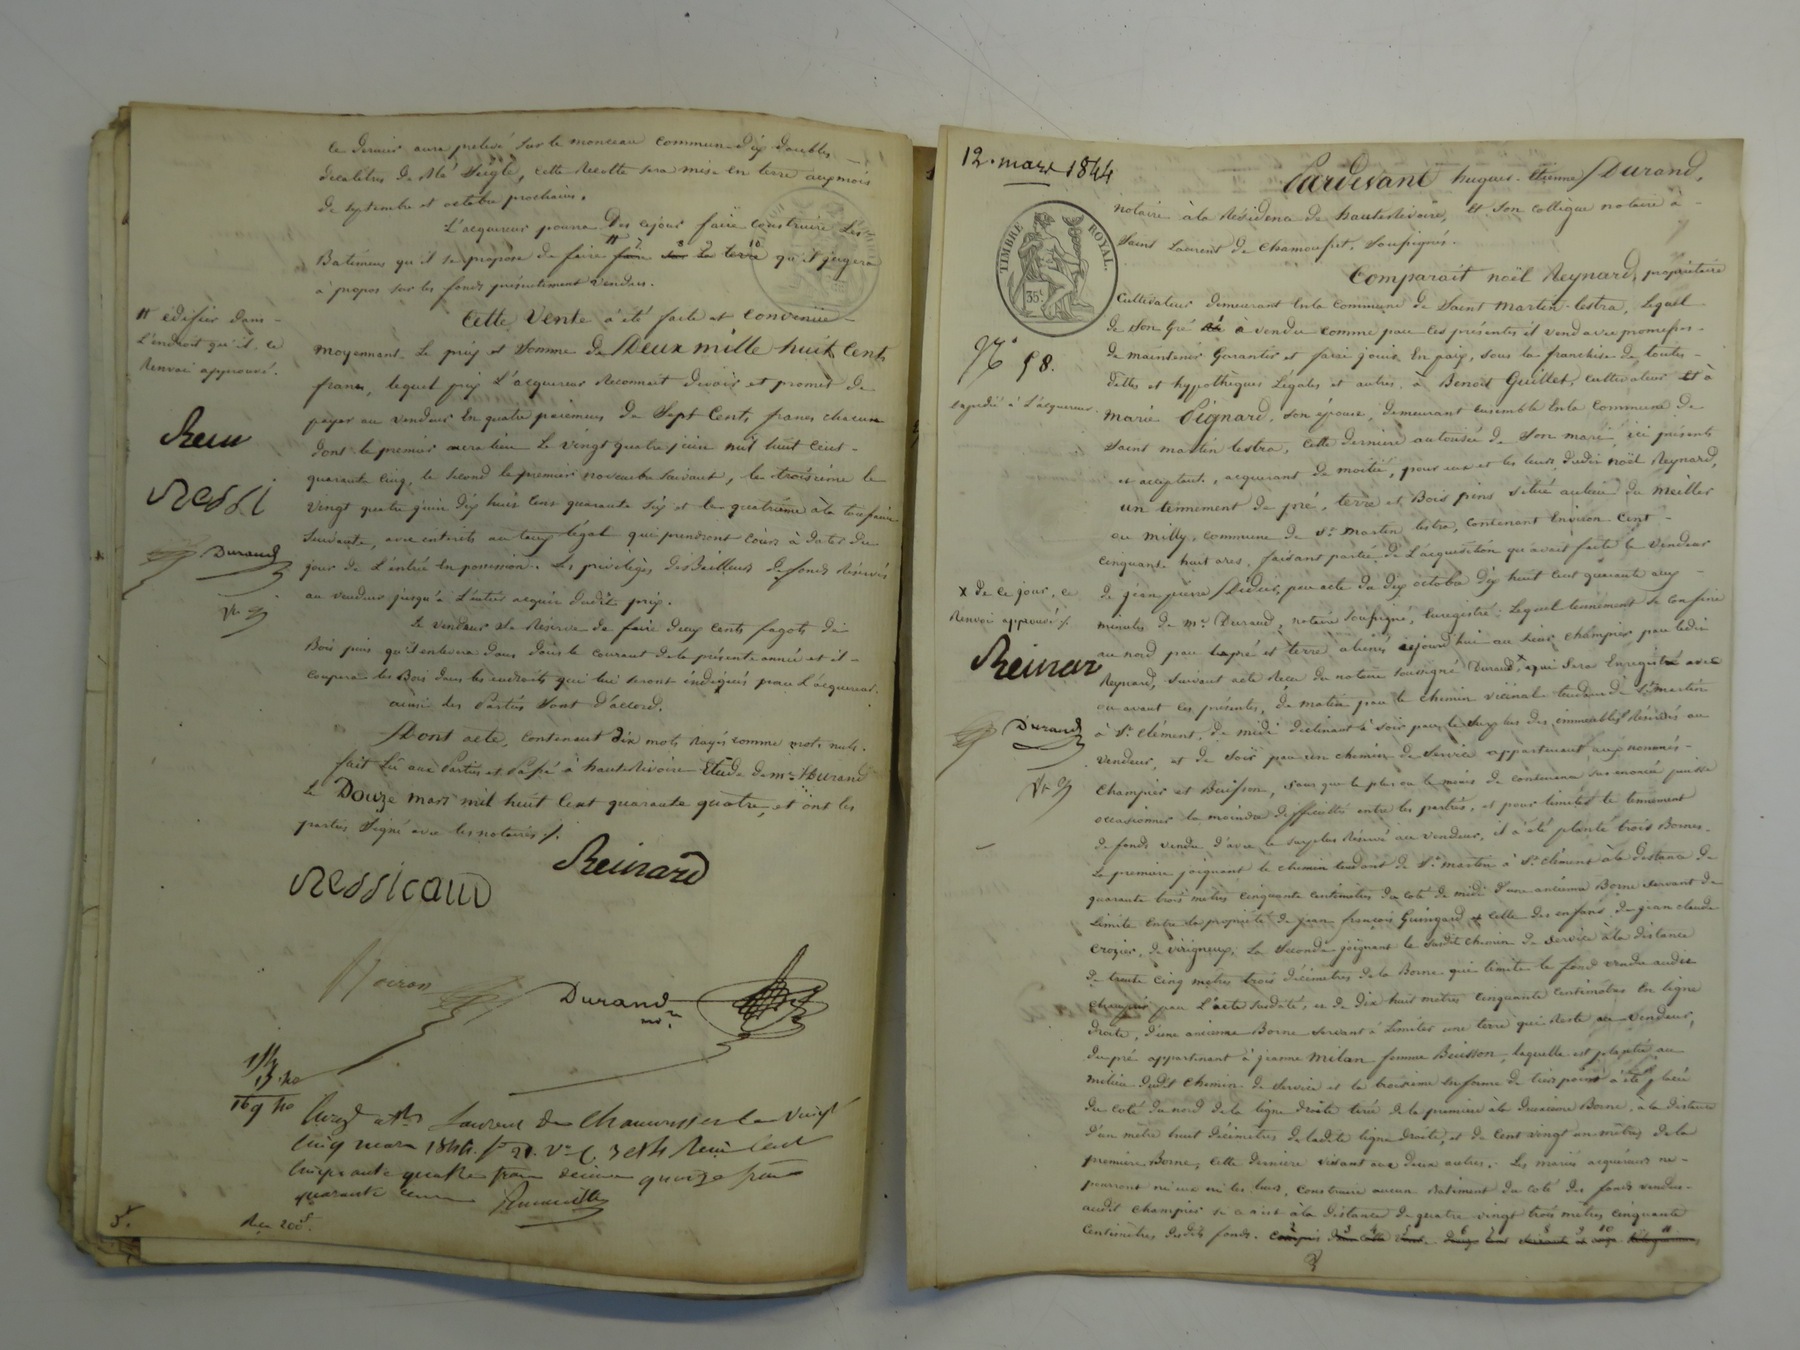 ce dernier aura prelevé sur le monceau commun dix doubles
decalitres de blé seigle, cette recolte sera mise en terre aux mois
de septembre et octobre prochains.
L'acquereur pourra dès cejour faire construire les
Batimens qu'il se propose de faire qu'il jugera
à propos sur les fonds présentement vendus.
Cette Vente a été faite et convenue
moyennant le prix et somme de Deux mille huit cents
francs, lequel prix l'acquereur reconnait devoir et promet de
payer au vendeur en quatre paiemens de Sept Cents francs chacun
dont le premier aura lieu le vingt quatre juin mil huit cent
quarante cinq, le second le premier novembre suivant, le troisième le
vingt quatre juin dix huit cent quarante six et le quatrième à la toussaint
suivante, avec intérêts au taux légal qui prendront cours à dater du
jour de l'entrée en possession. Les privilèges des Bailleurs de fonds réservés
au vendeur jusqu'à l'entier acquit dudit prix.
Le vendeur se réserve de faire deux cents fagots de
Bois pins qu'il enlevera dans le courant de la présente année et il
coupera les Bois dans les endroits qui lui seront indiqués par l'acquereur.
ainsi les Parties sont d'accord.
Dont acte, contenant dix mots rayés comme mots nuls.
fait lu aux Parties et Passé à hauterivoire Etude de me Durand
le Douze mars mil huit cent quarante quatre, et ont les
parties signé avec les notaires ./.
# édifier dans
l'endroit qu'il, ce
Renvoi approuvé.
Rein
ressi
Durand
ressicaud
Reinard
Durand
Laurent de Chamousset le vingt
cinq mars 1844. f° 21. Vo C. 3 et 4 Reçu Cent
cinquante quatre francs decime quinze francs
quarante
Reçu 200f.
12. mars 1844
TIMBRE ROYAL.
35c
N° 58.
expédié à l'acquereur.
Pardevant hugues-Etienne Durand,
notaire à la Résidence de hauterivoire, et son collègue notaire à
Saint Laurent de Chamousset, Soussignés.
Comparait noël Reynard, propriétaire
Cultivateur demeurant en la commune de Saint martin lestra, lequel
de son gré a vendu comme par ces présentes il vend avec promesse
de maintenir garantir et faire jouir en paix, sous la franchise de toutes
dettes et hypothèques légales et autres, à Benoit Guillet, cultivateur et à
marie Pignard, son épouse, demeurant ensemble en la commune de
Saint martin lestra, cette dernière autorisée de son mari, ici présents
et acceptants, acquerant de moitié, pour eux et les leurs, dudit noël Reynard,
un tennement de pré, terre et Bois pins situé au lieu du meiller
ou milly, commune de St martin lestra, contenant environ cent
cinquante huit ares, faisant partie de l'acquisition qu'avait faite le vendeur
de jean pierre Didier, par acte du dix octobre dix huit cent quarante
minutes de me Durand, notaire soussigné, enregistré. Lequel tennement se confine
au nord par le pré et terre aliénés cejourd'hui au sieur champier par ledit
Reynard, suivant acte reçu du notaire soussigné Durand x, qui sera enregistré avec
ou avant ces présentes, de matin par le chemin vicinal tendant de St martin
à St Clément, de midi declinant à soir par le surplus des immeubles réservés au
vendeur, et de soir par un chemin de service appartenant aux nommés
champier et Buisson, sans que le plus ou le moins de contenance sus énoncée puisse
occasionner la moindre difficulté entre les parties, et pour limiter le tennement
de fonds vendu d'avec le surplus réservé au vendeur, il a été planté trois Bornes.
La première joignant le chemin tendant de St martin à St clément à la distance de
quarante trois mètres cinquante centimètres du coté de midi d'une ancienne Borne servant de
limite entre la propriété de jean françois Guingard et celle des enfans de jean claude
crozier, de virigneux, La seconde joignant le susdit chemin de service à la distance
de trente cinq metres trois décimètres de la Borne qui limite le fond vendu audit
champier par l'acte susdaté, et de dix huit mètres cinquante centimètres en ligne
droite, d'une ancienne Borne servant à limiter une terre qui reste au vendeur,
du pré appartenant à jeanne milan femme Buisson, laquelle est plantée au
milieu dudit chemin de service et la troisième en forme de tiers point a été placée
du coté du nord de la ligne droite tirée de la première à la deuxième Borne, à la distance
d'un mètre huit décimètres de ladite ligne droite, et de cent vingt un mètres de la
première Borne, cette dernière visant aux deux autres. Les mariés acquéreurs ne
pourront ni eux ni les leurs, construire aucun Batiment du coté des fonds vendus
audit champier si ce n'est à la distance de quatre vingt trois mètres cinquante
centimètres desdits fonds.
x de ce jour, ce
Renvoi approuvé ./.
Reinar
Durand